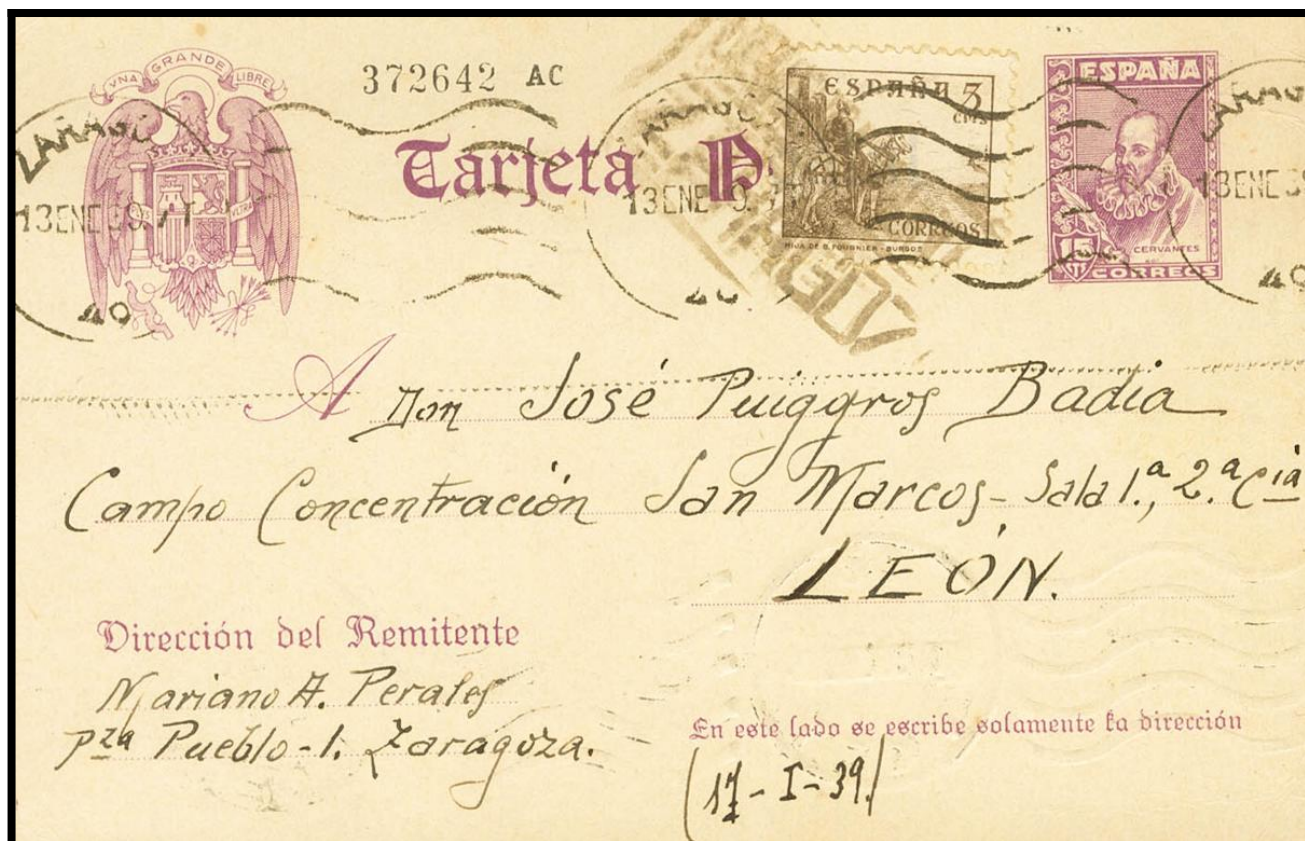 UNA GRANDE LIBRE
372642 AC
Tarjeta P
ESPAÑA 5
CMS
CORREOS
HIJA DE B. FOURNIER - BURGOS
ESPAÑA
CERVANTES
15
CTS
CORREOS
13 ENE 39
A Don José Puiggros Badia
Campo Concentración San Marcos - Sala 1.ª, 2.ª Cia
LEÓN.
Dirección del Remitente
Mariano A. Perales
Pza Pueblo - 1. Zaragoza.
En este lado se escribe solamente la dirección
(17 - I - 39)